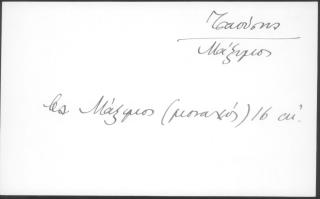 Τζαούσης
Μάξιμος
βλ Μάξιμος (μοναχός) 16 αἰ.